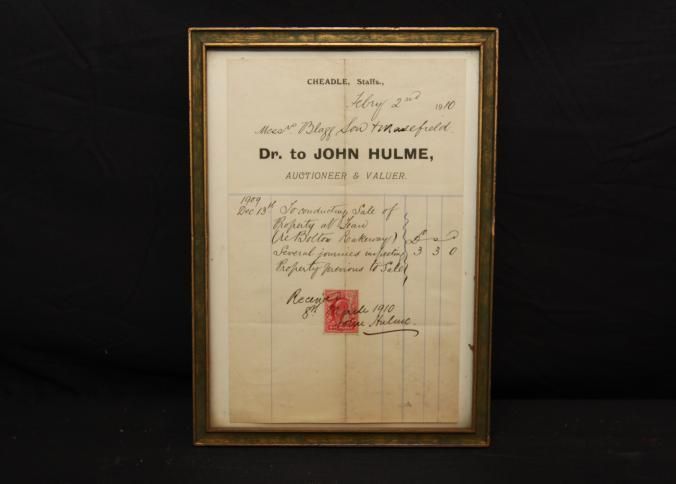 CHEADLE, Staffs.,
Febry 2nd 1910
Messrs Blagg Son & Masefield
Dr. to JOHN HULME,
AUCTIONEER & VALUER.
1909
Dec 13th To conducting Sale of
Property at Tean
(re Bolton Rakeway) £ s d
Several journies inspecting 3 3 0
Property previous to Sale
Received
8th March 1910
John Hulme.